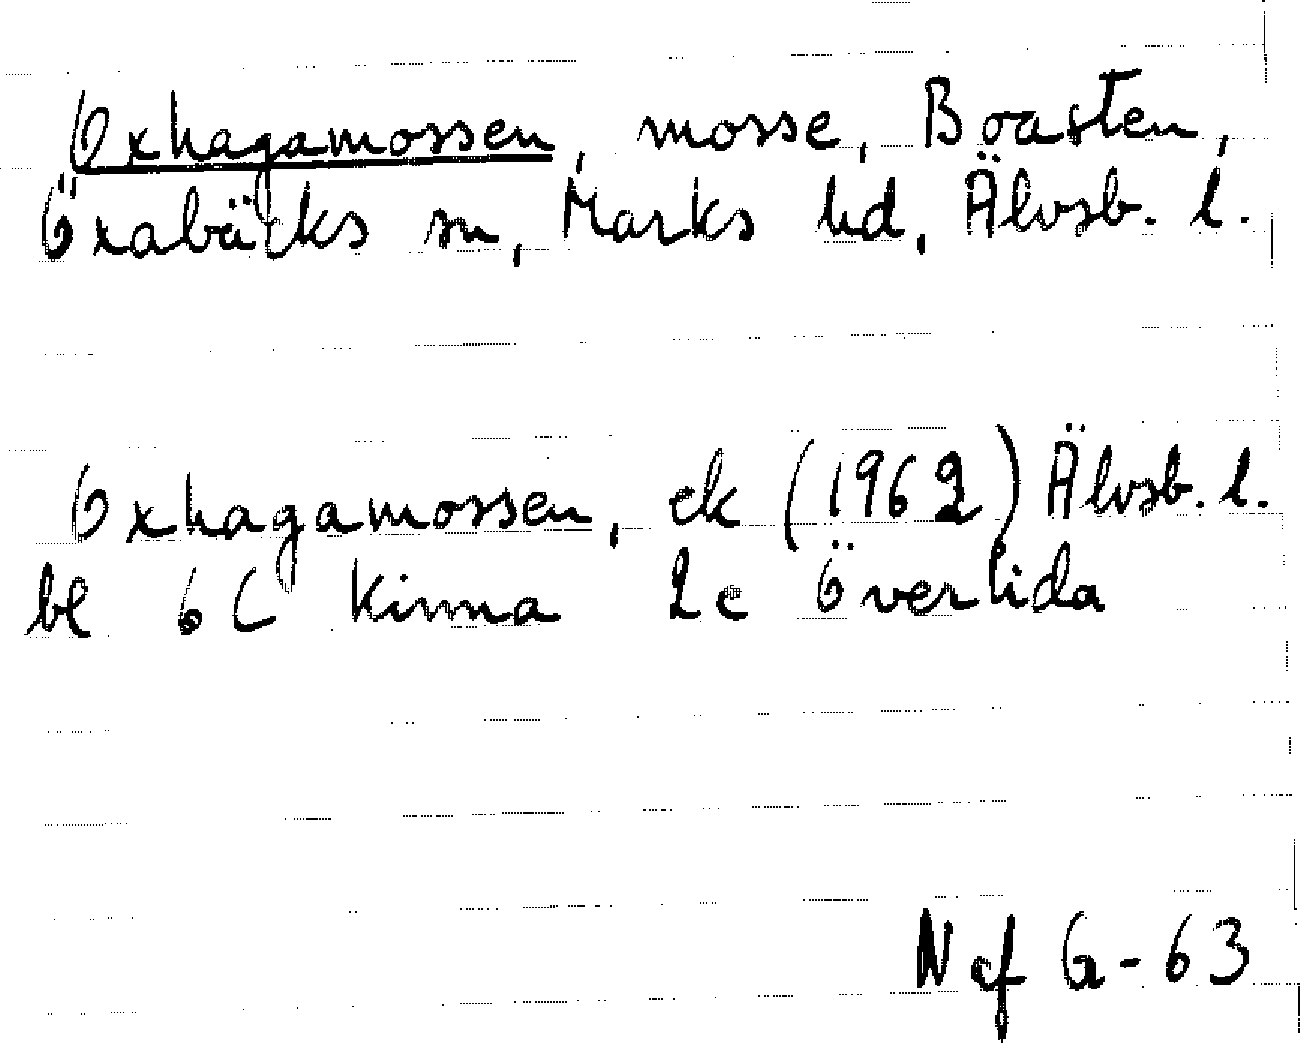 Oxhagamossen, mosse, Boasten,
Öxabäcks sn, Marks hd, Älvsb. l.
Oxhagamossen, ek (1962) Älvsb. l.
bl 6C Kinna 2c Överlida
N cf G-63